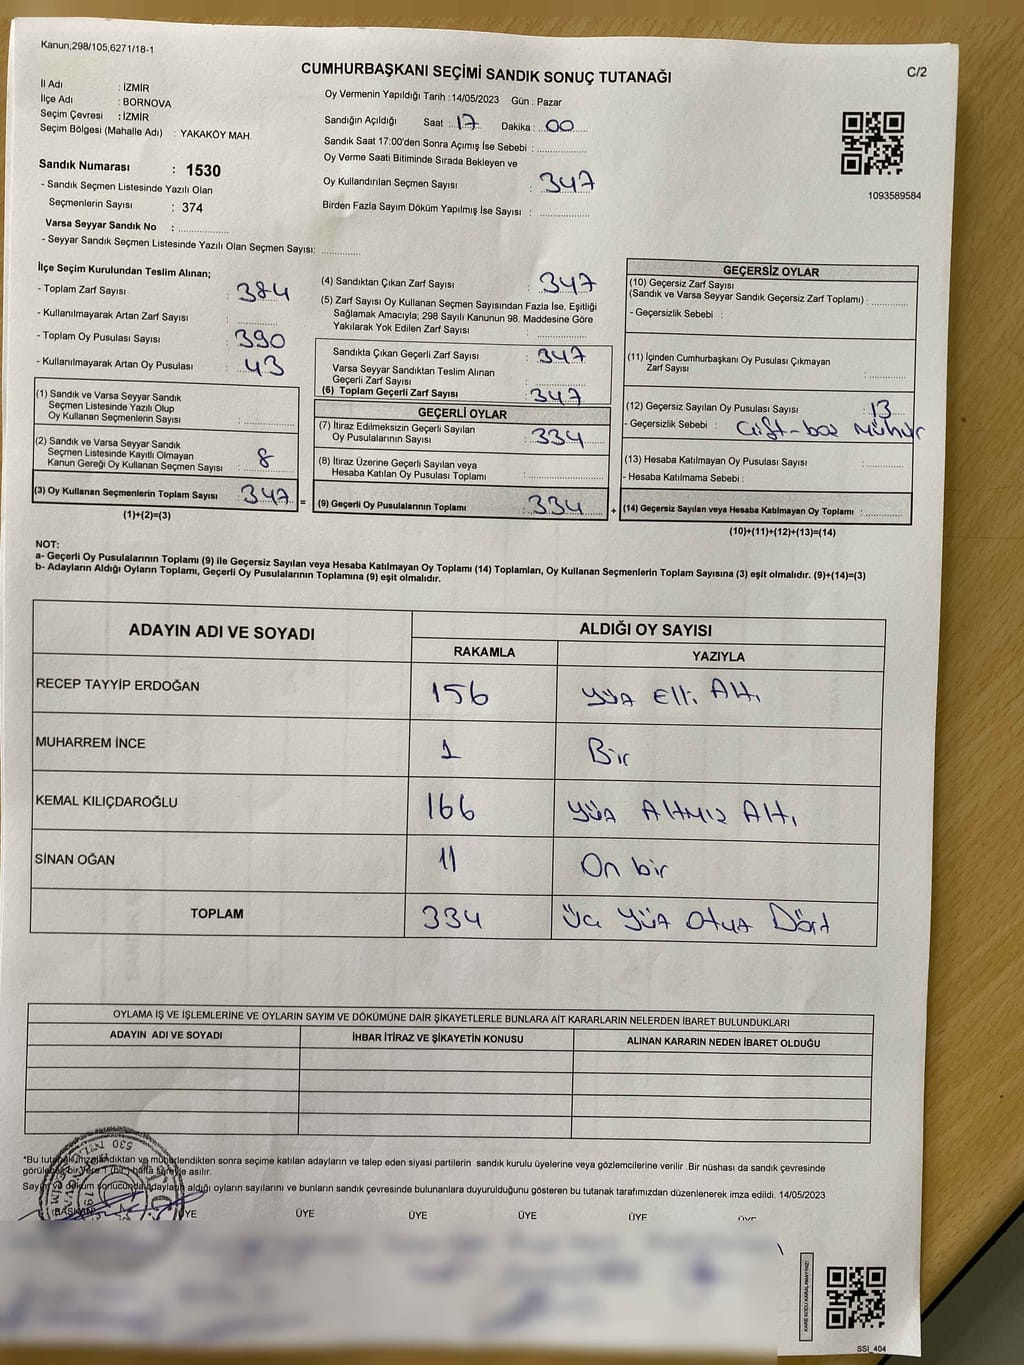 Kanun,298/105,6271/18-1
CUMHURBAŞKANI SEÇİMİ SANDIK SONUÇ TUTANAĞI
C/2
İl Adı : İZMİR
İlçe Adı : BORNOVA
Seçim Çevresi : İZMİR
Seçim Bölgesi (Mahalle Adı) : YAKAKÖY MAH.
Sandık Numarası : 1530
- Sandık Seçmen Listesinde Yazılı Olan
Seçmenlerin Sayısı : 374
Varsa Seyyar Sandık No :
- Seyyar Sandık Seçmen Listesinde Yazılı Olan Seçmen Sayısı:
Oy Vermenin Yapıldığı Tarih :14/05/2023 Gün : Pazar
Sandığın Açıldığı Saat : 17 Dakika : 00
Sandık Saat 17:00'den Sonra Açımış İse Sebebi :
Oy Verme Saati Bitiminde Sırada Bekleyen ve
Oy Kullandırılan Seçmen Sayısı : 347
Birden Fazla Sayım Döküm Yapılmış İse Sayısı :
1093589584
İlçe Seçim Kurulundan Teslim Alınan;
- Toplam Zarf Sayısı : 384
- Kullanılmayarak Artan Zarf Sayısı :
- Toplam Oy Pusulası Sayısı : 390
- Kullanılmayarak Artan Oy Pusulası : 43
(1) Sandık ve Varsa Seyyar Sandık
Seçmen Listesinde Yazılı Olup
Oy Kullanan Seçmenlerin Sayısı :
(2) Sandık ve Varsa Seyyar Sandık
Seçmen Listesinde Kayıtlı Olmayan
Kanun Gereği Oy Kullanan Seçmen Sayısı : 8
(3) Oy Kullanan Seçmenlerin Toplam Sayısı : 347 =
(1)+(2)=(3)
(4) Sandıktan Çıkan Zarf Sayısı : 347
(5) Zarf Sayısı Oy Kullanan Seçmen Sayısından Fazla İse, Eşitliği
Sağlamak Amacıyla; 298 Sayılı Kanunun 98. Maddesine Göre
Yakılarak Yok Edilen Zarf Sayısı :
Sandıkta Çıkan Geçerli Zarf Sayısı : 347
Varsa Seyyar Sandıktan Teslim Alınan
Geçerli Zarf Sayısı :
(6) Toplam Geçerli Zarf Sayısı : 347
GEÇERLİ OYLAR
(7) İtiraz Edilmeksizin Geçerli Sayılan
Oy Pusulalarının Sayısı : 334
(8) İtiraz Üzerine Geçerli Sayılan veya
Hesaba Katılan Oy Pusulası Toplamı :
(9) Geçerli Oy Pusulalarının Toplamı : 334 +
GEÇERSİZ OYLAR
(10) Geçersiz Zarf Sayısı
(Sandık ve Varsa Seyyar Sandık Geçersiz Zarf Toplamı) :
- Geçersizlik Sebebi :
(11) İçinden Cumhurbaşkanı Oy Pusulası Çıkmayan
Zarf Sayısı :
(12) Geçersiz Sayılan Oy Pusulası Sayısı : 13
- Geçersizlik Sebebi : Çift-boş Mühür
(13) Hesaba Katılmayan Oy Pusulası Sayısı :
- Hesaba Katılmama Sebebi :
(14) Geçersiz Sayılan veya Hesaba Katılmayan Oy Toplamı :
(10)+(11)+(12)+(13)=(14)
NOT:
a- Geçerli Oy Pusulalarının Toplamı (9) ile Geçersiz Sayılan veya Hesaba Katılmayan Oy Toplamı (14) Toplamları, Oy Kullanan Seçmenlerin Toplam Sayısına (3) eşit olmalıdır. (9)+(14)=(3)
b- Adayların Aldığı Oyların Toplamı, Geçerli Oy Pusulalarının Toplamına (9) eşit olmalıdır.
ADAYIN ADI VE SOYADI ALDIĞI OY SAYISI
RAKAMLA YAZIYLA
RECEP TAYYİP ERDOĞAN 156 yüz Elli Altı
MUHARREM İNCE 1 Bir
KEMAL KILIÇDAROĞLU 166 yüz Altmız Altı
SİNAN OĞAN 11 On bir
TOPLAM 334 Üç yüz Otuz Dört
OYLAMA İŞ VE İŞLEMLERİNE VE OYLARIN SAYIM VE DÖKÜMÜNE DAİR ŞİKAYETLERLE BUNLARA AİT KARARLARIN NELERDEN İBARET BULUNDUKLARI
ADAYIN ADI VE SOYADI İHBAR İTİRAZ VE ŞİKAYETİN KONUSU ALINAN KARARIN NEDEN İBARET OLDUĞU
*Bu ve mühürlendikten sonra seçime katılan adayların ve talep eden siyasi partilerin sandık kurulu üyelerine veya gözlemcilerine verilir .Bir nüshası da sandık çevresinde
görülebilir bir yere 1 (bir) hafta süreyle asılır.
Sayım ve döküm sonucunda adayların aldığı oyların sayılarını ve bunların sandık çevresinde bulunanlara duyurulduğunu gösteren bu tutanak tarafımızdan düzenlenerek imza edildi. 14/05/2023
BAŞKAN ÜYE ÜYE ÜYE ÜYE ÜYE ÜYE
KARE KODU KARALAMAYINIZ!
SSI_404